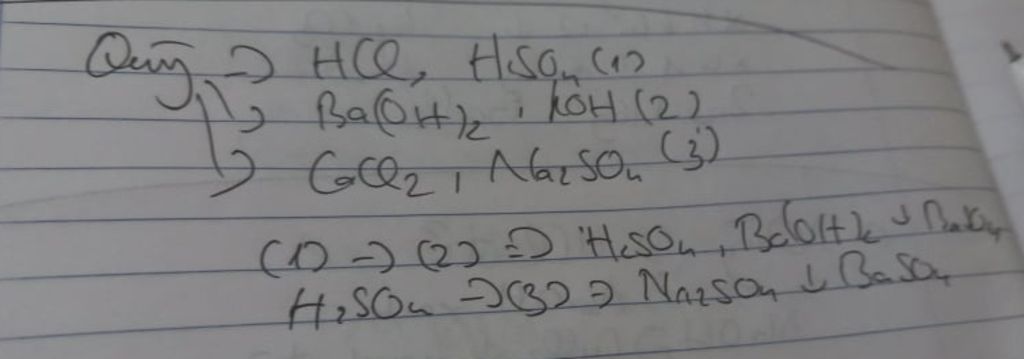 Quỳ → HCl, H2SO4 (1)
→ Ba(OH)2, KOH (2)
→ CaCl2, Na2SO4 (3)
(1) → (2) ⇒ H2SO4, Ba(OH)2 ↓ BaSO4
H2SO4 → (3) ⇒ Na2SO4 ↓ BaSO4